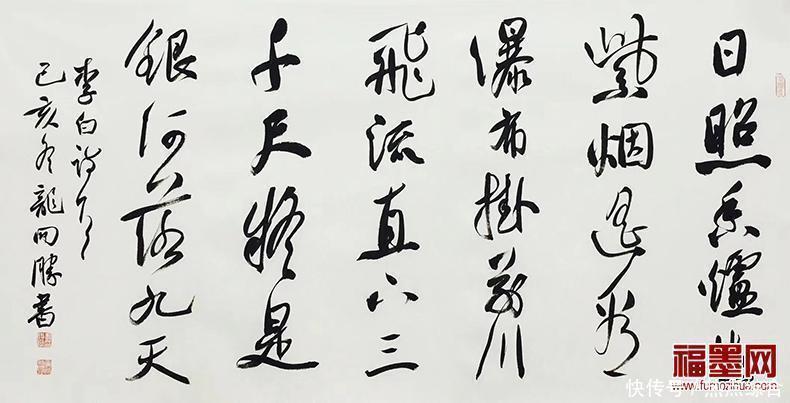 日照香爐生
紫烟遥看
瀑布掛前川
飛流直下三
千尺疑是
銀河落九天
李白詩
己亥冬龍開勝書
福墨网
www.fumozihua.com
快传号